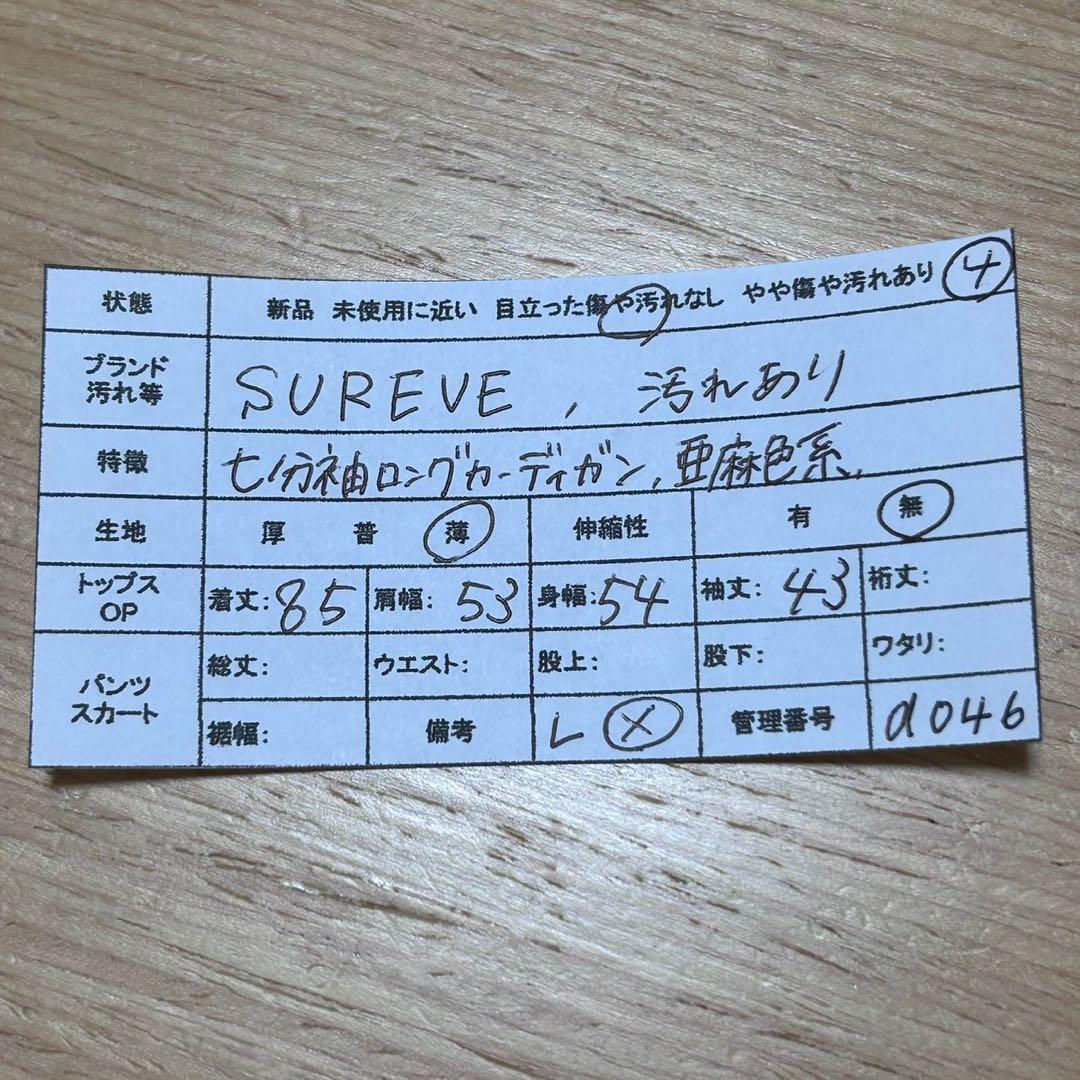 状態 新品 未使用に近い 目立った傷や汚れなし やや傷や汚れあり 4
ブランド
汚れ等 SUREVE , 汚れあり
特徴 七分袖ロングカーディガン, 亜麻色系,
生地 厚 普 薄 伸縮性 有 無
トップス
OP 着丈:85 肩幅:53 身幅:54 袖丈:43 裄丈:
パンツ
スカート 総丈: ウエスト: 股上: 股下: ワタリ:
裾幅: 備考 L X 管理番号 d046